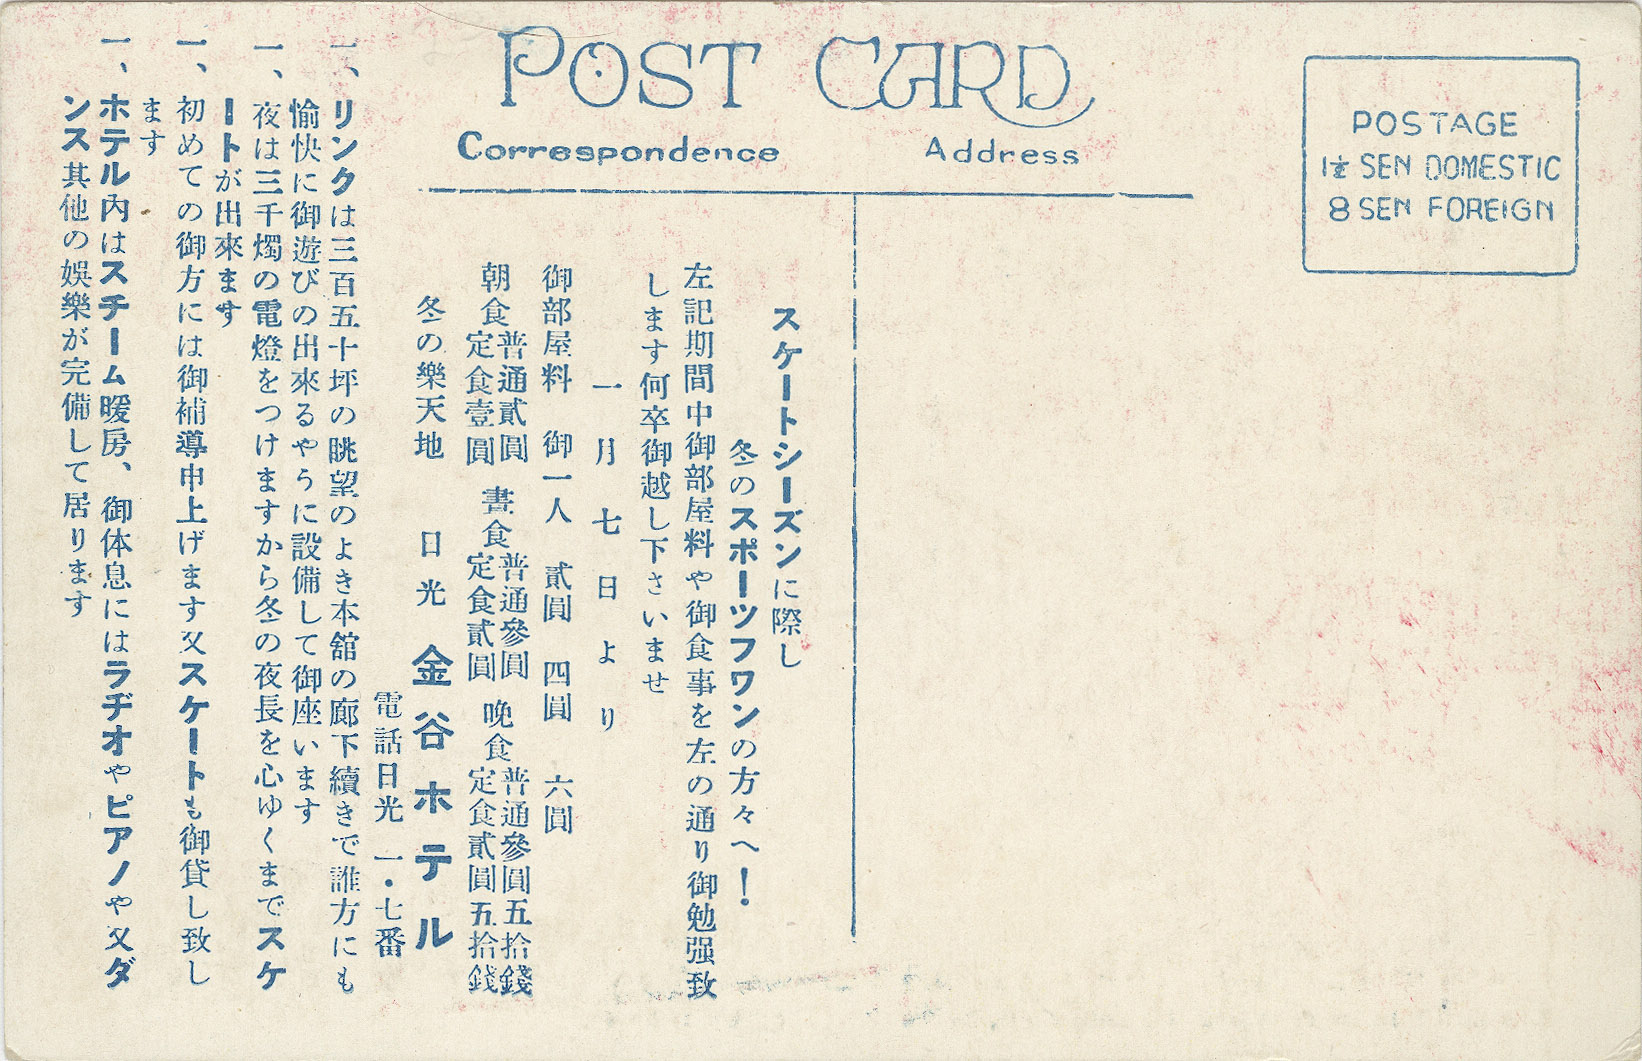 POST CARD
Correspondence
Address
POSTAGE
1½ SEN DOMESTIC
8 SEN FOREIGN
スケートシーズンに際し
冬のスポーツフワンの方々へ！
左記期間中御部屋料や御食事を左の通り御勉强致
します何卒御越し下さいませ
一月七日より
御部屋料 御一人 貳圓 四圓 六圓
朝食 普通貳圓 定食壹圓 晝食 普通參圓 定食貳圓 晩食 普通參圓五拾錢 定食貳圓五拾錢
冬の樂天地 日光 金谷ホテル
電話日光 一・七番
一、リンクは三百五十坪の眺望のよき本舘の廊下續きで誰方にも
愉快に御遊びの出來るやうに設備して御座います
一、夜は三千燭の電燈をつけますから冬の夜長を心ゆくまでスケ
ートが出來ます
一、初めての御方には御補導申上げます又スケートも御貸し致し
ます
一、ホテル内はスチーム暖房、御体息にはラヂオやピアノや又ダ
ンス其他の娯樂が完備して居ります